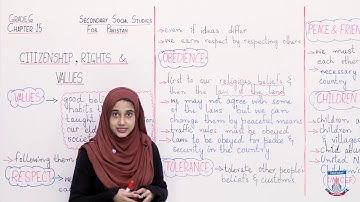 GRADE 6
CHAPTER 15
SECONDARY SOCIAL STUDIES
FOR PAKISTAN
CITIZENSHIP, RIGHTS &
VALUES
VALUES
good
habits
taught
our
society
following them
RESPECT
even if ideas differ
we earn respect by respecting others
OBEDIENCE
first to our religious beliefs &
then the law of the land
we may not agree with some
of the laws but we can
change them by peaceful means
traffic rules must be obeyed
laws to be obeyed for peace &
security in the country
TOLERANCE
tolerate other people's
beliefs & customs
PEACE &
we must
each other
necessary
country
CHILDREN
children a
& village
Child abu
United
(UNICEF)
children